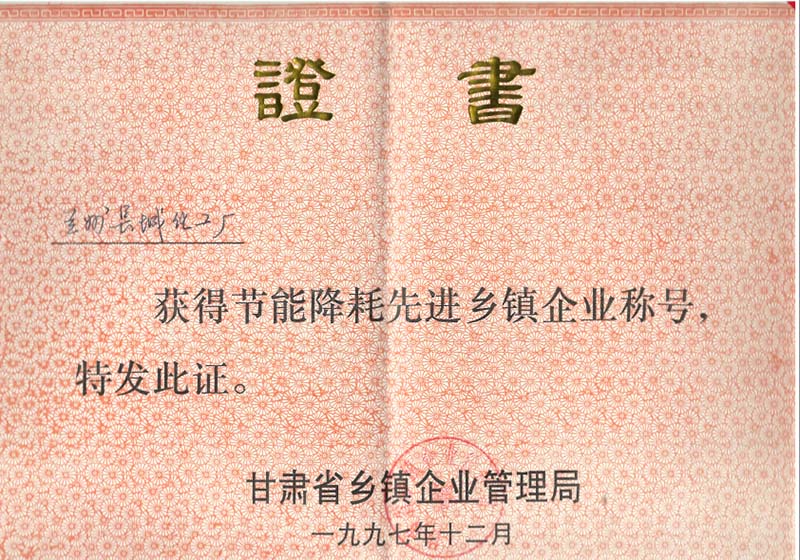 證書
兰州长城化工厂
获得节能降耗先进乡镇企业称号，
特发此证。
甘肃省乡镇企业管理局
一九九七年十二月